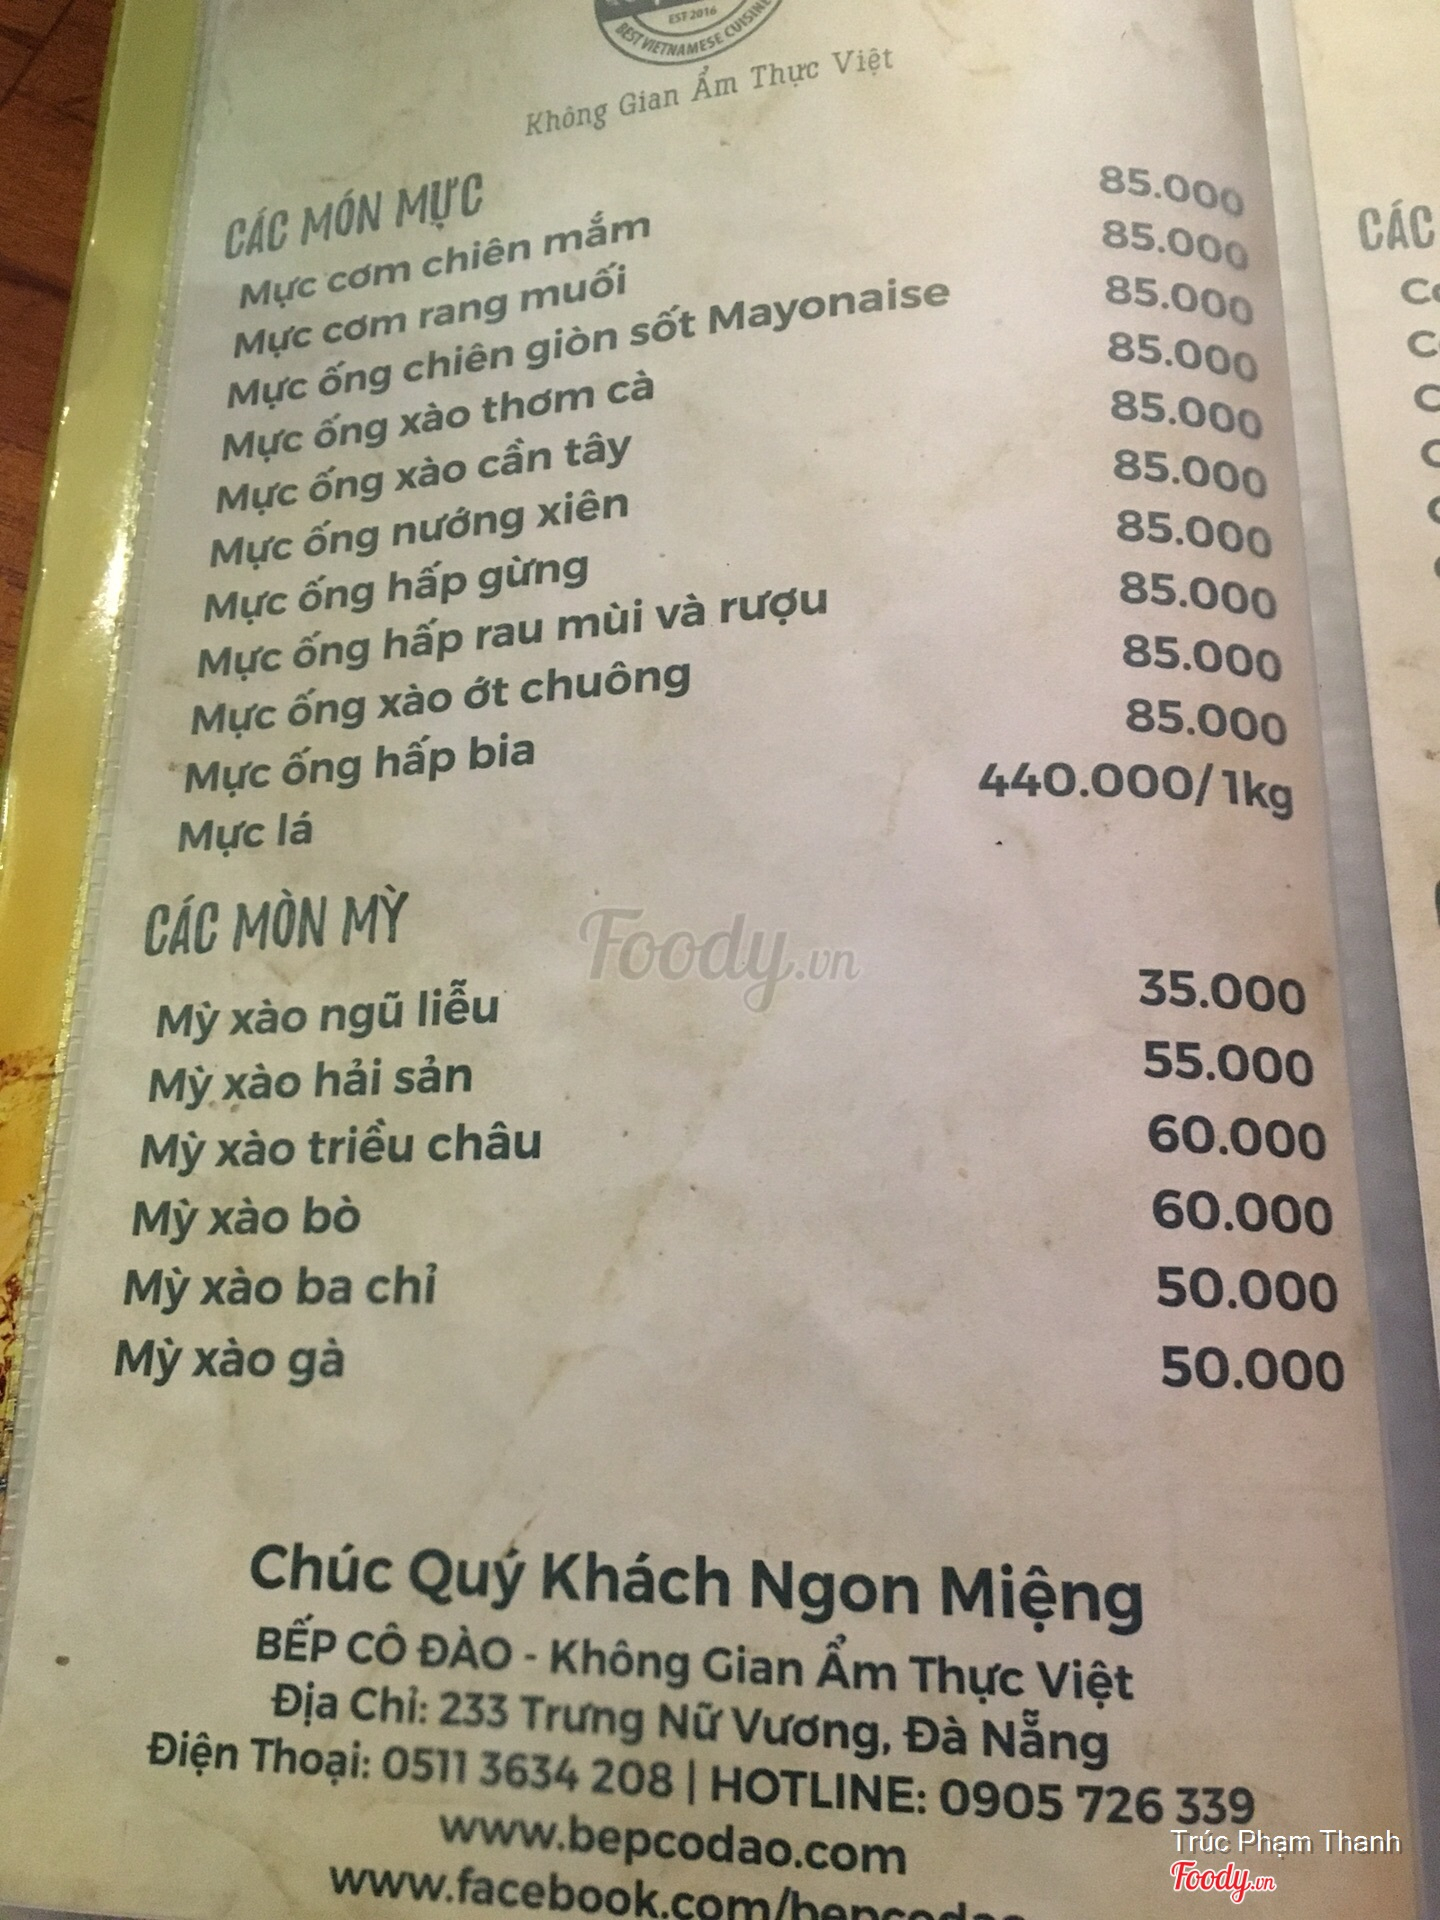 EST 2016
BEST VIETNAMESE CUISINE
Không Gian Ẩm Thực Việt
CÁC MÓN MỰC
Mực cơm chiên mắm 85.000
Mực cơm rang muối 85.000
Mực ống chiên giòn sốt Mayonaise 85.000
Mực ống xào thơm cà 85.000
Mực ống xào cần tây 85.000
Mực ống nướng xiên 85.000
Mực ống hấp gừng 85.000
Mực ống hấp rau mùi và rượu 85.000
Mực ống xào ớt chuông 85.000
Mực ống hấp bia 85.000
Mực lá 440.000/1kg
CÁC MÒN MỲ
Mỳ xào ngũ liễu 35.000
Mỳ xào hải sản 55.000
Mỳ xào triều châu 60.000
Mỳ xào bò 60.000
Mỳ xào ba chỉ 50.000
Mỳ xào gà 50.000
Foody.vn
Chúc Quý Khách Ngon Miệng
BẾP CÔ ĐÀO - Không Gian Ẩm Thực Việt
Địa Chỉ: 233 Trưng Nữ Vương, Đà Nẵng
Điện Thoại: 0511 3634 208 | HOTLINE: 0905 726 339
www.bepcodao.com
www.facebook.com/bepcodao
CÁC
Trúc Phạm Thanh
Foody.vn